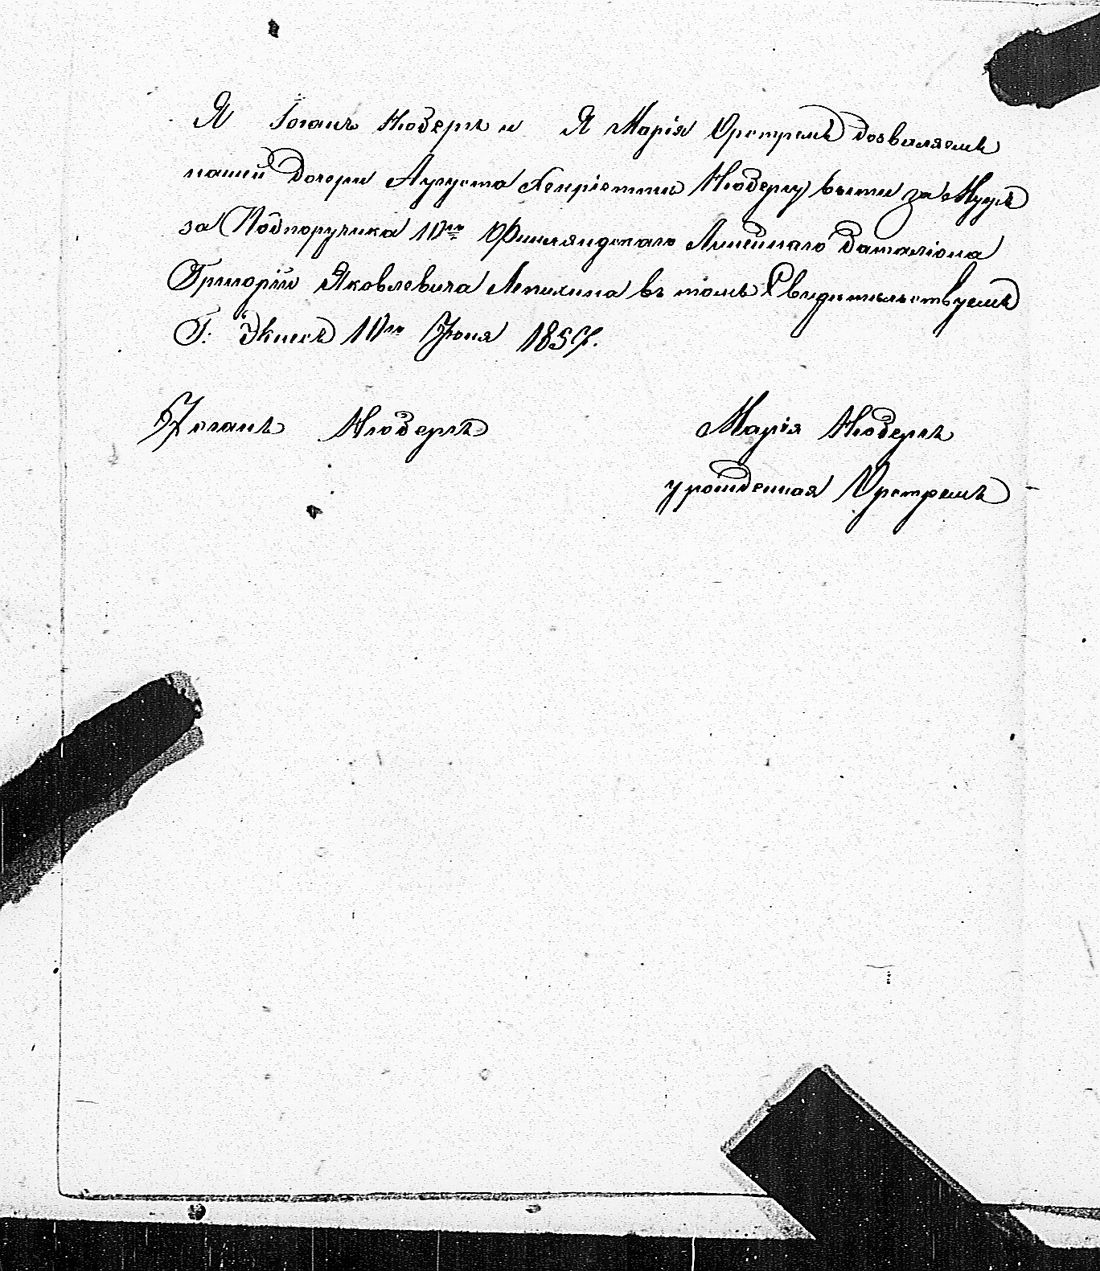 Я Іоганъ Нюбергъ и Я Марія Эрстремъ дозваляемъ
нашей дочери Августа Хенріетти Нюбергу выти за Мужъ
за Подпоручика 10го Финляндскаго Линейнаго Баталіона
Григорій Яковлевича Лепихина въ томъ Свидѣтельствуемъ
Г: Экнесъ 10го Іюня 1857.
Іоганъ Нюбергъ
Марія Нюбергъ
урожденная Эрстремъ